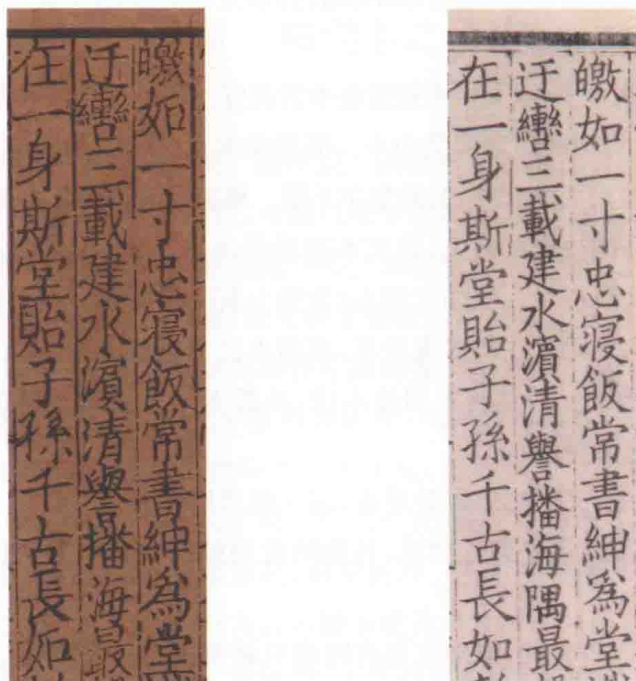 皦如一寸忠寢飯常書紳爲堂
迂轡三載建水濵清譽播海最
在一身斯堂貽子孫千古長如
皦如一寸忠寢飯常書紳爲堂
迂轡三載建水濵清譽播海隅最
在一身斯堂貽子孫千古長如